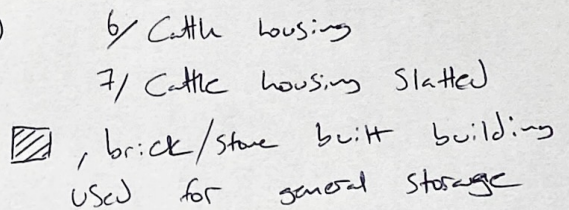 6/ Cattle housing
7/ Cattle housing Slatted
, brick/stone built building
used for general storage